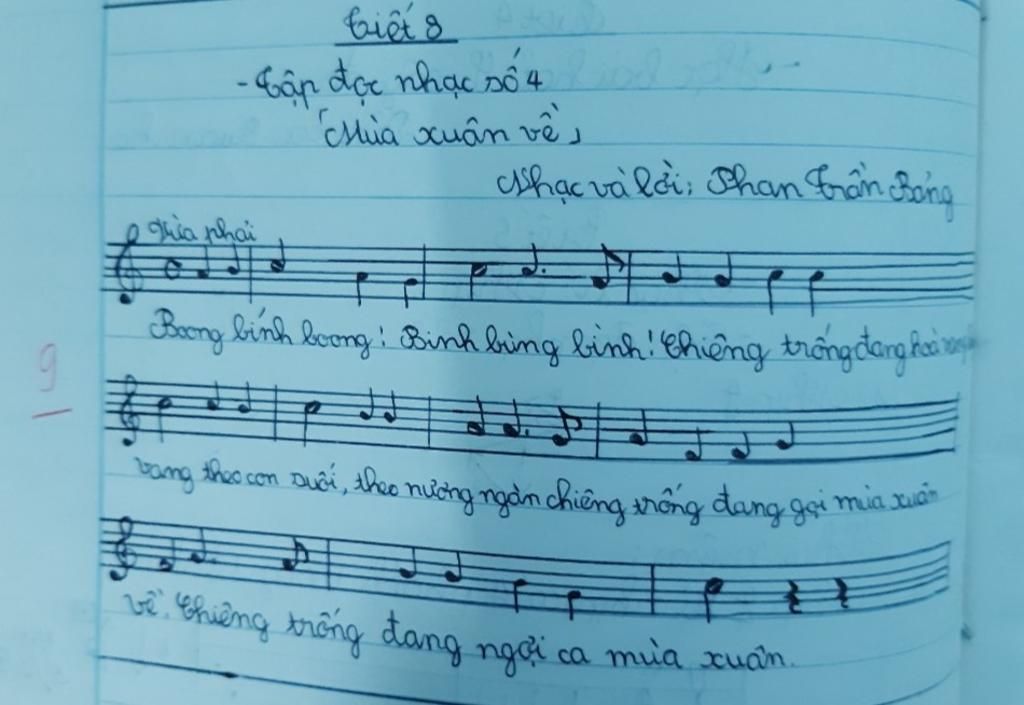 Tiết 8
- Tập đọc nhạc số 4
"Mùa xuân về"
Nhạc và lời: Phan Trần Bảng
Vừa phải
Boong bính boong! Binh bùng bình! Chiêng trống đang hoà
9
vang theo con suối, theo nương ngàn chiêng trống đang gọi mùa xuân
về. Chiêng trống đang ngợi ca mùa xuân.